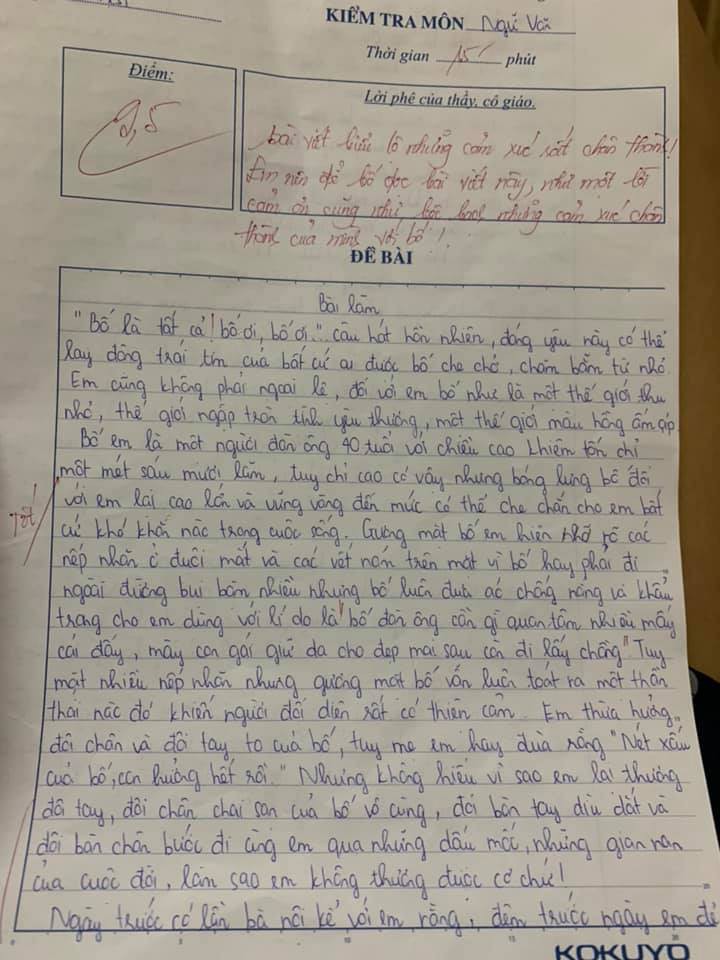 KIỂM TRA MÔN Ngữ Văn
Thời gian 15' phút
Điểm:
9,5
Lời phê của thầy, cô giáo.
bài viết biểu lộ những cảm xúc rất chân thành!
Em nên để bố đọc bài viết này, như một lời
cảm ơn cũng như bộc bạch những cảm xúc chân
thành của mình với bố!
ĐỀ BÀI
Bài làm
"Bố là tất cả! bố ơi, bố ơi." câu hát hồn nhiên, đáng yêu này có thể
lay động trái tim của bất cứ ai được bố che chở, chăm bẵm từ nhỏ.
Em cũng không phải ngoại lệ, đối với em bố như là một thế giới thu
nhỏ, thế giới ngập tràn tình yêu thương, một thế giới màu hồng ấm áp.
Bố em là một người đàn ông 40 tuổi với chiều cao khiêm tốn chỉ
một mét sáu mươi lăm, tuy chỉ cao có vậy nhưng bóng lưng bố đối
với em lại cao lớn và vững vàng đến mức có thể che chắn cho em bất
cứ khó khăn nào trong cuộc sống. Gương mặt bố em hiện rõ các
nếp nhăn ở đuôi mắt và các vết nám trên mặt vì bố hay phải đi
ngoài đường bụi bặm nhiều nhưng bố luôn đưa áo chống nắng và khẩu
trang cho em dùng với lí do là "bố đàn ông cần gì quan tâm nhiều mấy
cái đấy, mày con gái giữ da cho đẹp mai sau còn đi lấy chồng" Tuy
mặt nhiều nếp nhăn nhưng gương mặt bố vẫn luôn toát ra một thần
thái nào đó khiến người đối diện rất có thiện cảm. Em thừa hưởng
đôi chân và đôi tay to của bố, tuy mẹ em hay đùa rằng "Nét xấu
của bố, con hưởng hết rồi." Nhưng không hiểu vì sao em lại thương
đôi tay, đôi chân chai sạn của bố vô cùng, đôi bàn tay dìu dắt và
đôi bàn chân bước đi cùng em qua những dấu mốc, những gian nan
của cuộc đời, làm sao em không thương được cơ chứ!
Ngày trước có lần bà nội kể với em rằng, đêm trước ngày em đẻ
Tốt!
KOKUYO